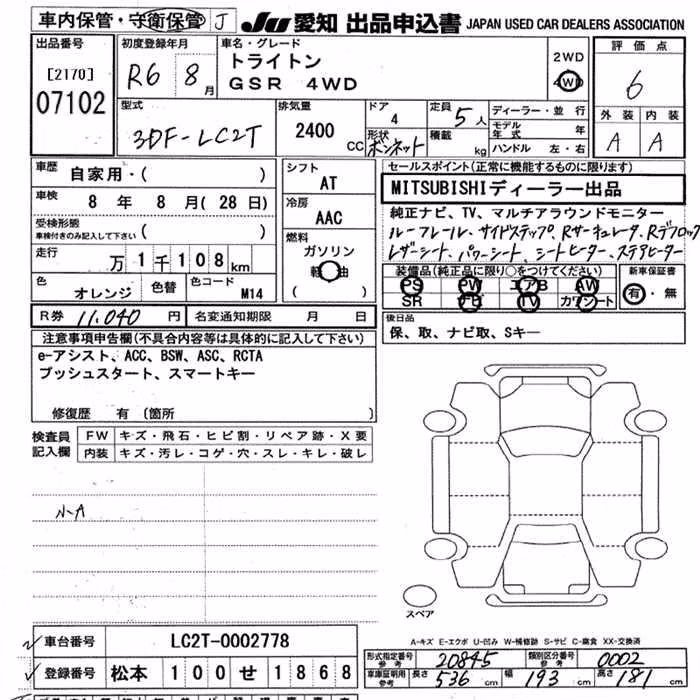 車内保管・守衛保管 J JU 愛知 出品申込書 JAPAN USED CAR DEALERS ASSOCIATION
出品番号 [2170] 07102
初度登録年月 R6 8月
車名・グレード トライトン GSR 4WD
2WD 4WD
評価点 6
外装 内装
A A
型式 3DF-LC2T
排気量 2400 CC
ドア 4
形状 ボンネット
定員 5人
積載 kg
ディーラー・並行
モデル年式 年
ハンドル 左・右
車歴 自家用・( )
車検 8年 8月(28日)
受検形態 車検付きのみ記入して下さい ( )
走行 万1千108km
色 オレンジ 色替 色コード M14
シフト AT
冷房 AAC
燃料 ガソリン 軽油 ( )
セールスポイント(正常に機能するものに限ります)
MITSUBISHIディーラー出品
純正ナビ、TV、マルチアラウンドモニター
ルーフレール、サイドステップ、Rサーキュレータ、Rデフロック
レザーシート、パワーシート、シートヒーター、ステアヒーター
装備品(純正品に限り○をつけてください) 新車保証書
PS PW エアB AW 有・無
SR ナビ TV カワシート
R券 11,040円 名変通知期限 月 日
後日品
保、取、ナビ取、Sキー
注意事項申告欄(不具合内容等は具体的に記入して下さい)
e-アシスト、ACC、BSW、ASC、RCTA
プッシュスタート、スマートキー
修復歴 有(箇所 )
検査員記入欄 FW キズ・飛石・ヒビ割・リペア跡・X要
内装 キズ・汚レ・コゲ・穴・スレ・キレ・破レ
小A
スペア
A-キズ E-エクボ U-凹み W-補修跡 S-サビ C-腐食 XX-交換済
車台番号 LC2T-0002778
登録番号 松本 100 せ 1868
形式指定番号 参考 20845 類別区分番号 参考 0002
車庫証明用 参考 長さ 536cm 幅 193cm 高さ 181cm